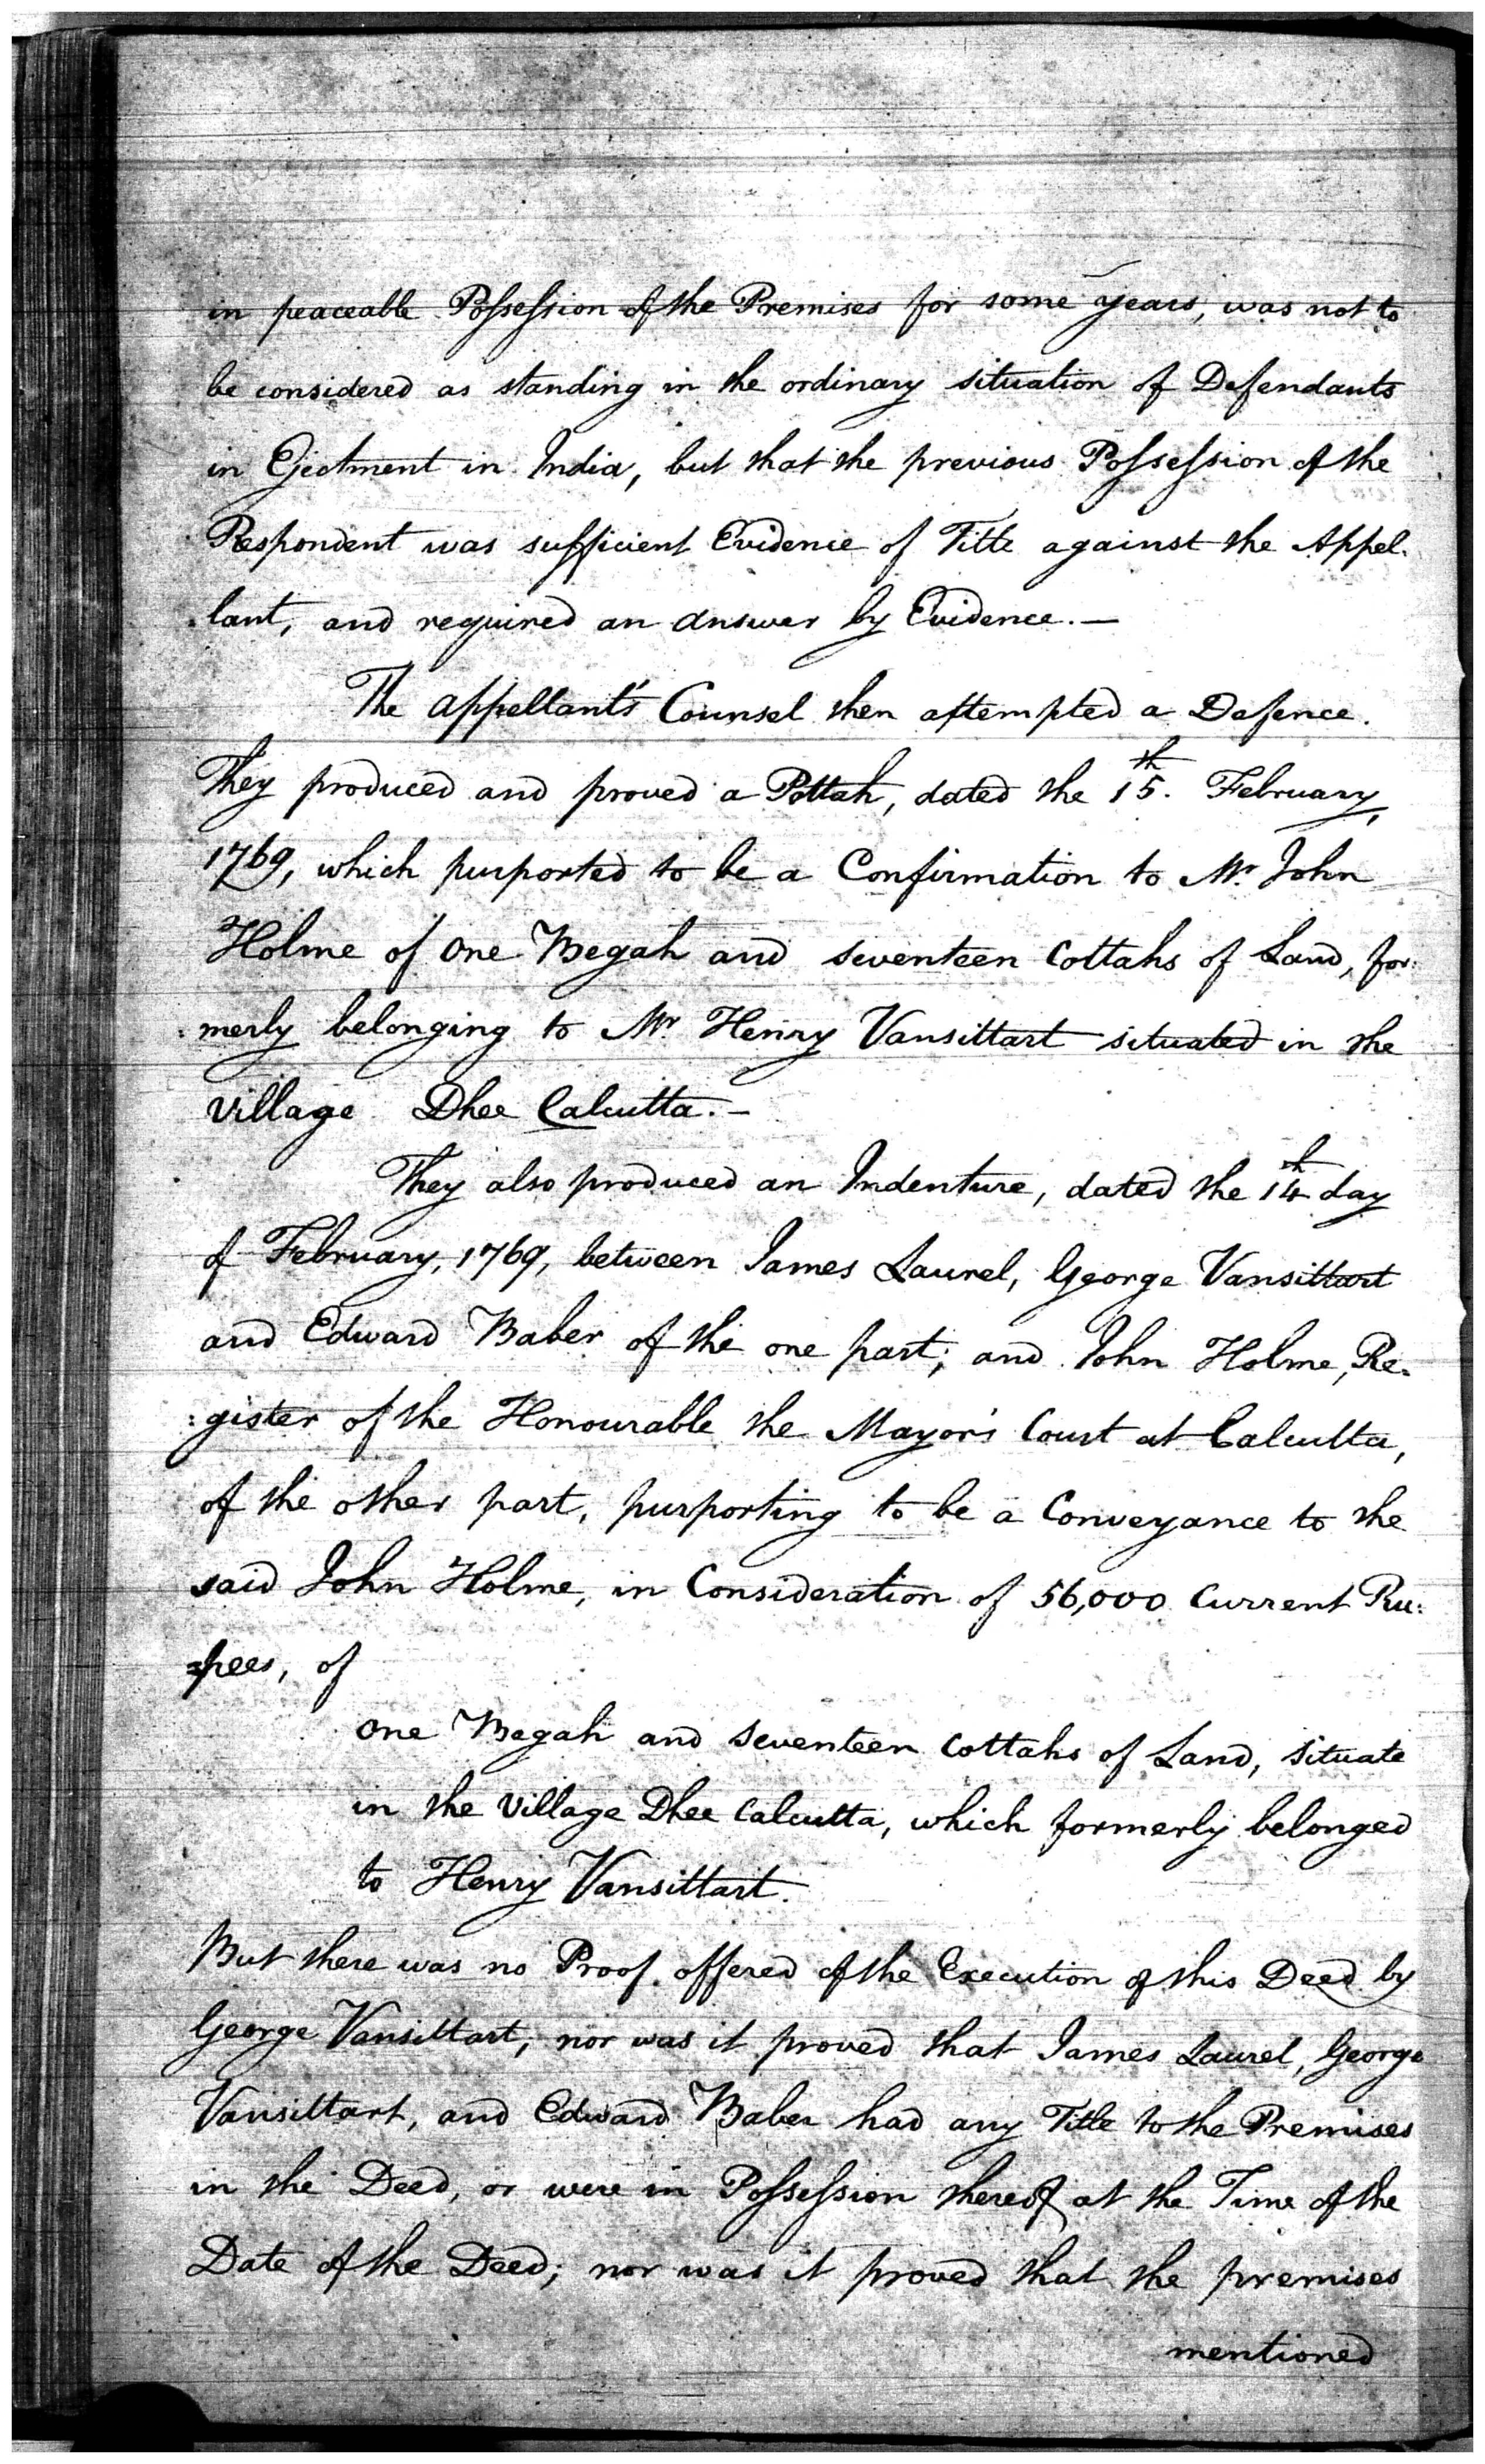 in peaceable Possession of the Premises for some years, was not to
be considered as standing in the ordinary situation of Defendants
in Ejectment in India, but that the previous Possession of the
Respondent was sufficient Evidence of Title against the Appel-
lant, and required an answer by Evidence. —
The appellant's Counsel then attempted a Defence.
They produced and proved a Pottah, dated the 15th. February,
1769, which purported to be a Confirmation to Mr. John
Holme of One Begah and seventeen Cottahs of Land, for:
:merly belonging to Mr Henry Vansittart situated in the
Village Dhee Calcutta. —
They also produced an Indenture, dated the 14th day
of February, 1769, between James Laurel, George Vansittart
and Edward Baber of the one part; and John Holme, Re-
:gister of the Honourable the Mayor's Court at Calcutta,
of the other part, purporting to be a Conveyance to the
said John Holme, in Consideration of 56,000 Current Ru:
=pees, of
One Begah and seventeen Cottahs of Land, situate
in the Village Dhee Calcutta, which formerly belonged
to Henry Vansittart.
But there was no Proof offered of the Execution of this Deed by
George Vansittart, nor was it proved that James Laurel, George
Vansittart, and Edward Baber had any Title to the Premises
in the Deed, or were in Possession thereof at the Time of the
Date of the Deed; nor was it proved that the premises
mentioned